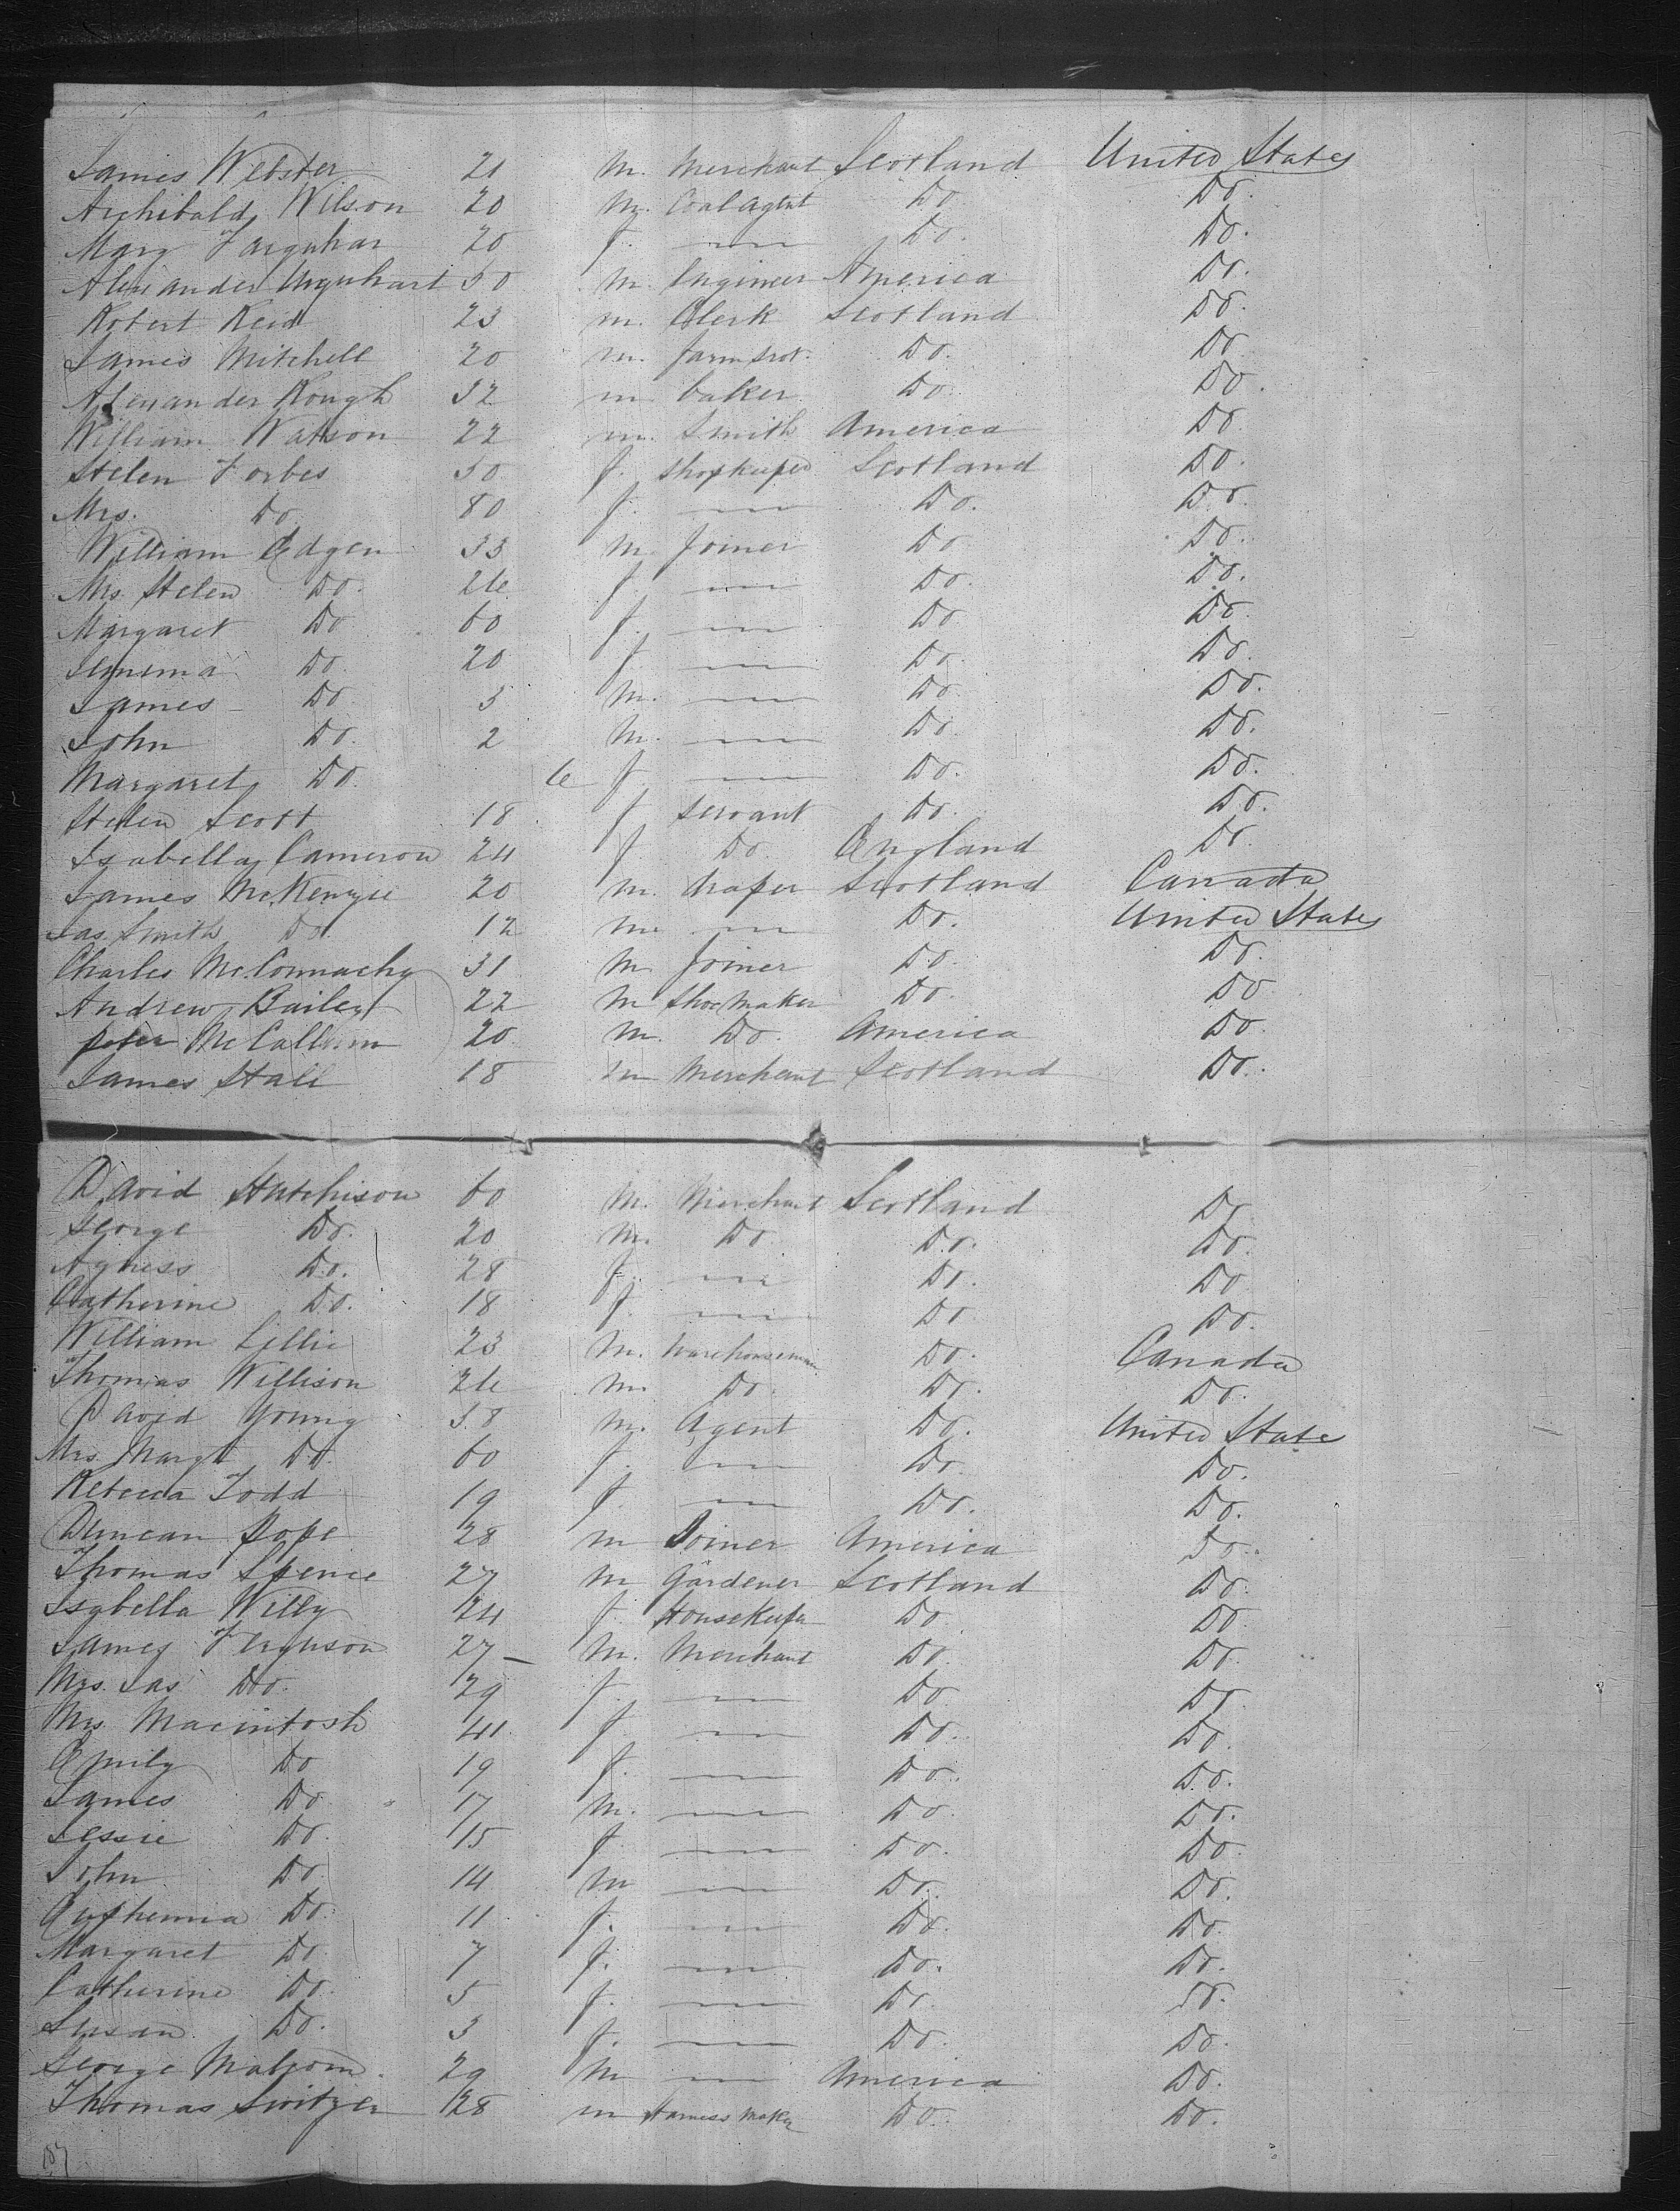 James Webster 21 m. Merchant Scotland United States
Archibald Wilson 20 m. Coal agent Do Do.
Marg Farquhar 20 f. — Do. Do.
Alexander Urquhart 50 m. Engineer America Do.
Robert Reid 23 m. Clerk Scotland Do.
James Mitchell 20 m. Do. Do
Alexander Rough 32 m baker Do. Do.
William Watson 22 m. Smith America Do.
Helen Forbes 50 f. Shopkeeper Scotland Do.
Mrs. Do 80 f. — Do. Do.
William Edgen 33 m. Joiner Do Do.
Mrs Helen Do. 26 f — Do. Do.
Margaret Do 60 f. — Do Do.
Do. 20 f. — Do. Do.
James Do 3 m. — Do. Do.
John Do. 2 m. — Do. Do.
Margaret Do. 6 f — Do. Do.
Helen Scott 18 f servant Do. Do.
Isabella Cameron 24 f. Do. England Do.
James McKenzie 20 m. draper Scotland Canada
Jas. Smith Do. 12 m. — Do. United States
Charles McConnachy 31 m. Joiner Do. Do.
Andrew Bailey 22 m Shoemaker Do. Do
peter McCallum 20 m. Do. America Do.
James Hall 18 m Merchant Scotland Do.
David Hutchison 60 m. Merchant Scotland Do
George Do. 20 m. Do. Do. Do.
Agness Do. 28 f. — Do. Do
Catherine Do. 18 f. — Do Do.
William Lillie 23 m. Warehouseman Do. Canada
Thomas Willison 26 m. Do. Do. Do.
David Young 58 m. Agent Do. United State
Mrs. Margt Do. 60 f. — Do. Do.
Rebecca Todd 19 f. — Do. Do.
Duncan pope 28 m Joiner America Do.
Thomas Spence 27 m Gardener Scotland Do.
Isabella Willy 24 f. Housekeeper Do. Do.
James Ferguson 27 — m. Merchant Do. Do.
Mrs. Jas Do. 29 f. — Do Do.
Mrs. Macintosh 41. f — Do. Do.
Emily Do 19 f. — Do. Do.
James Do 17 m. — Do Do.
Jessie Do. 15 f. — Do. Do.
John Do 14 m — Do. Do.
Euphemia Do. 11 f. — Do. Do.
Margaret Do. 7 f. — Do. Do.
Catherine Do. 5 f. — Do. Do.
Susan Do. 3 f. — Do. Do.
George Malcom 29 m — America Do.
Thomas Switzer 28 m Harness Maker Do. Do.